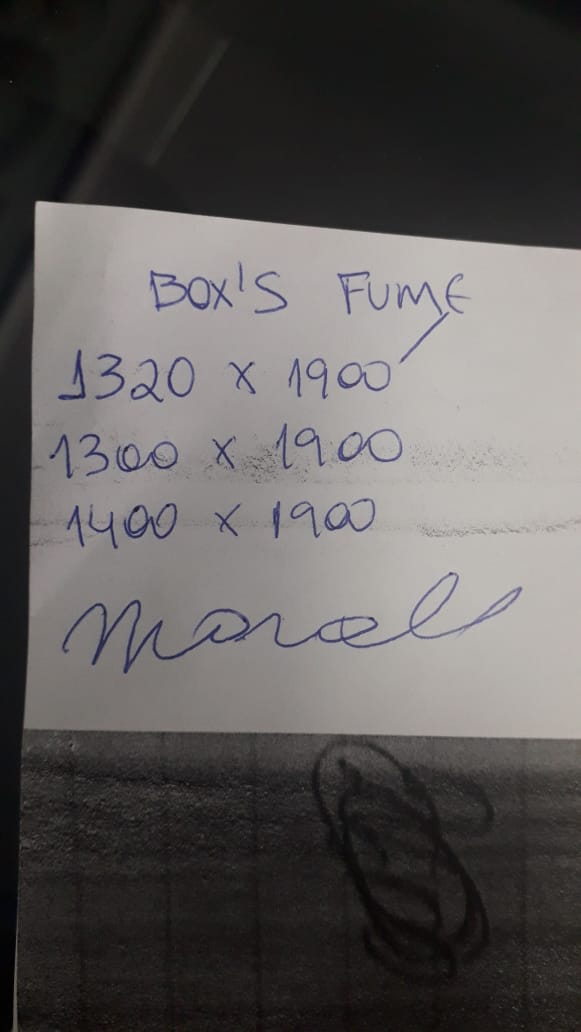 BOX'S FUME
1320 x 1900
1300 x 1900
1400 x 1900